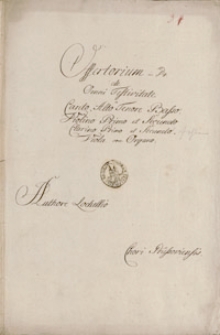 Offertorium
de
Omni Festivitate
Canto, Alto Tenore Basso
Violino Primo et Secundo
Clarino Primo et Secundo
Viola con Organo.
Authore
Chori